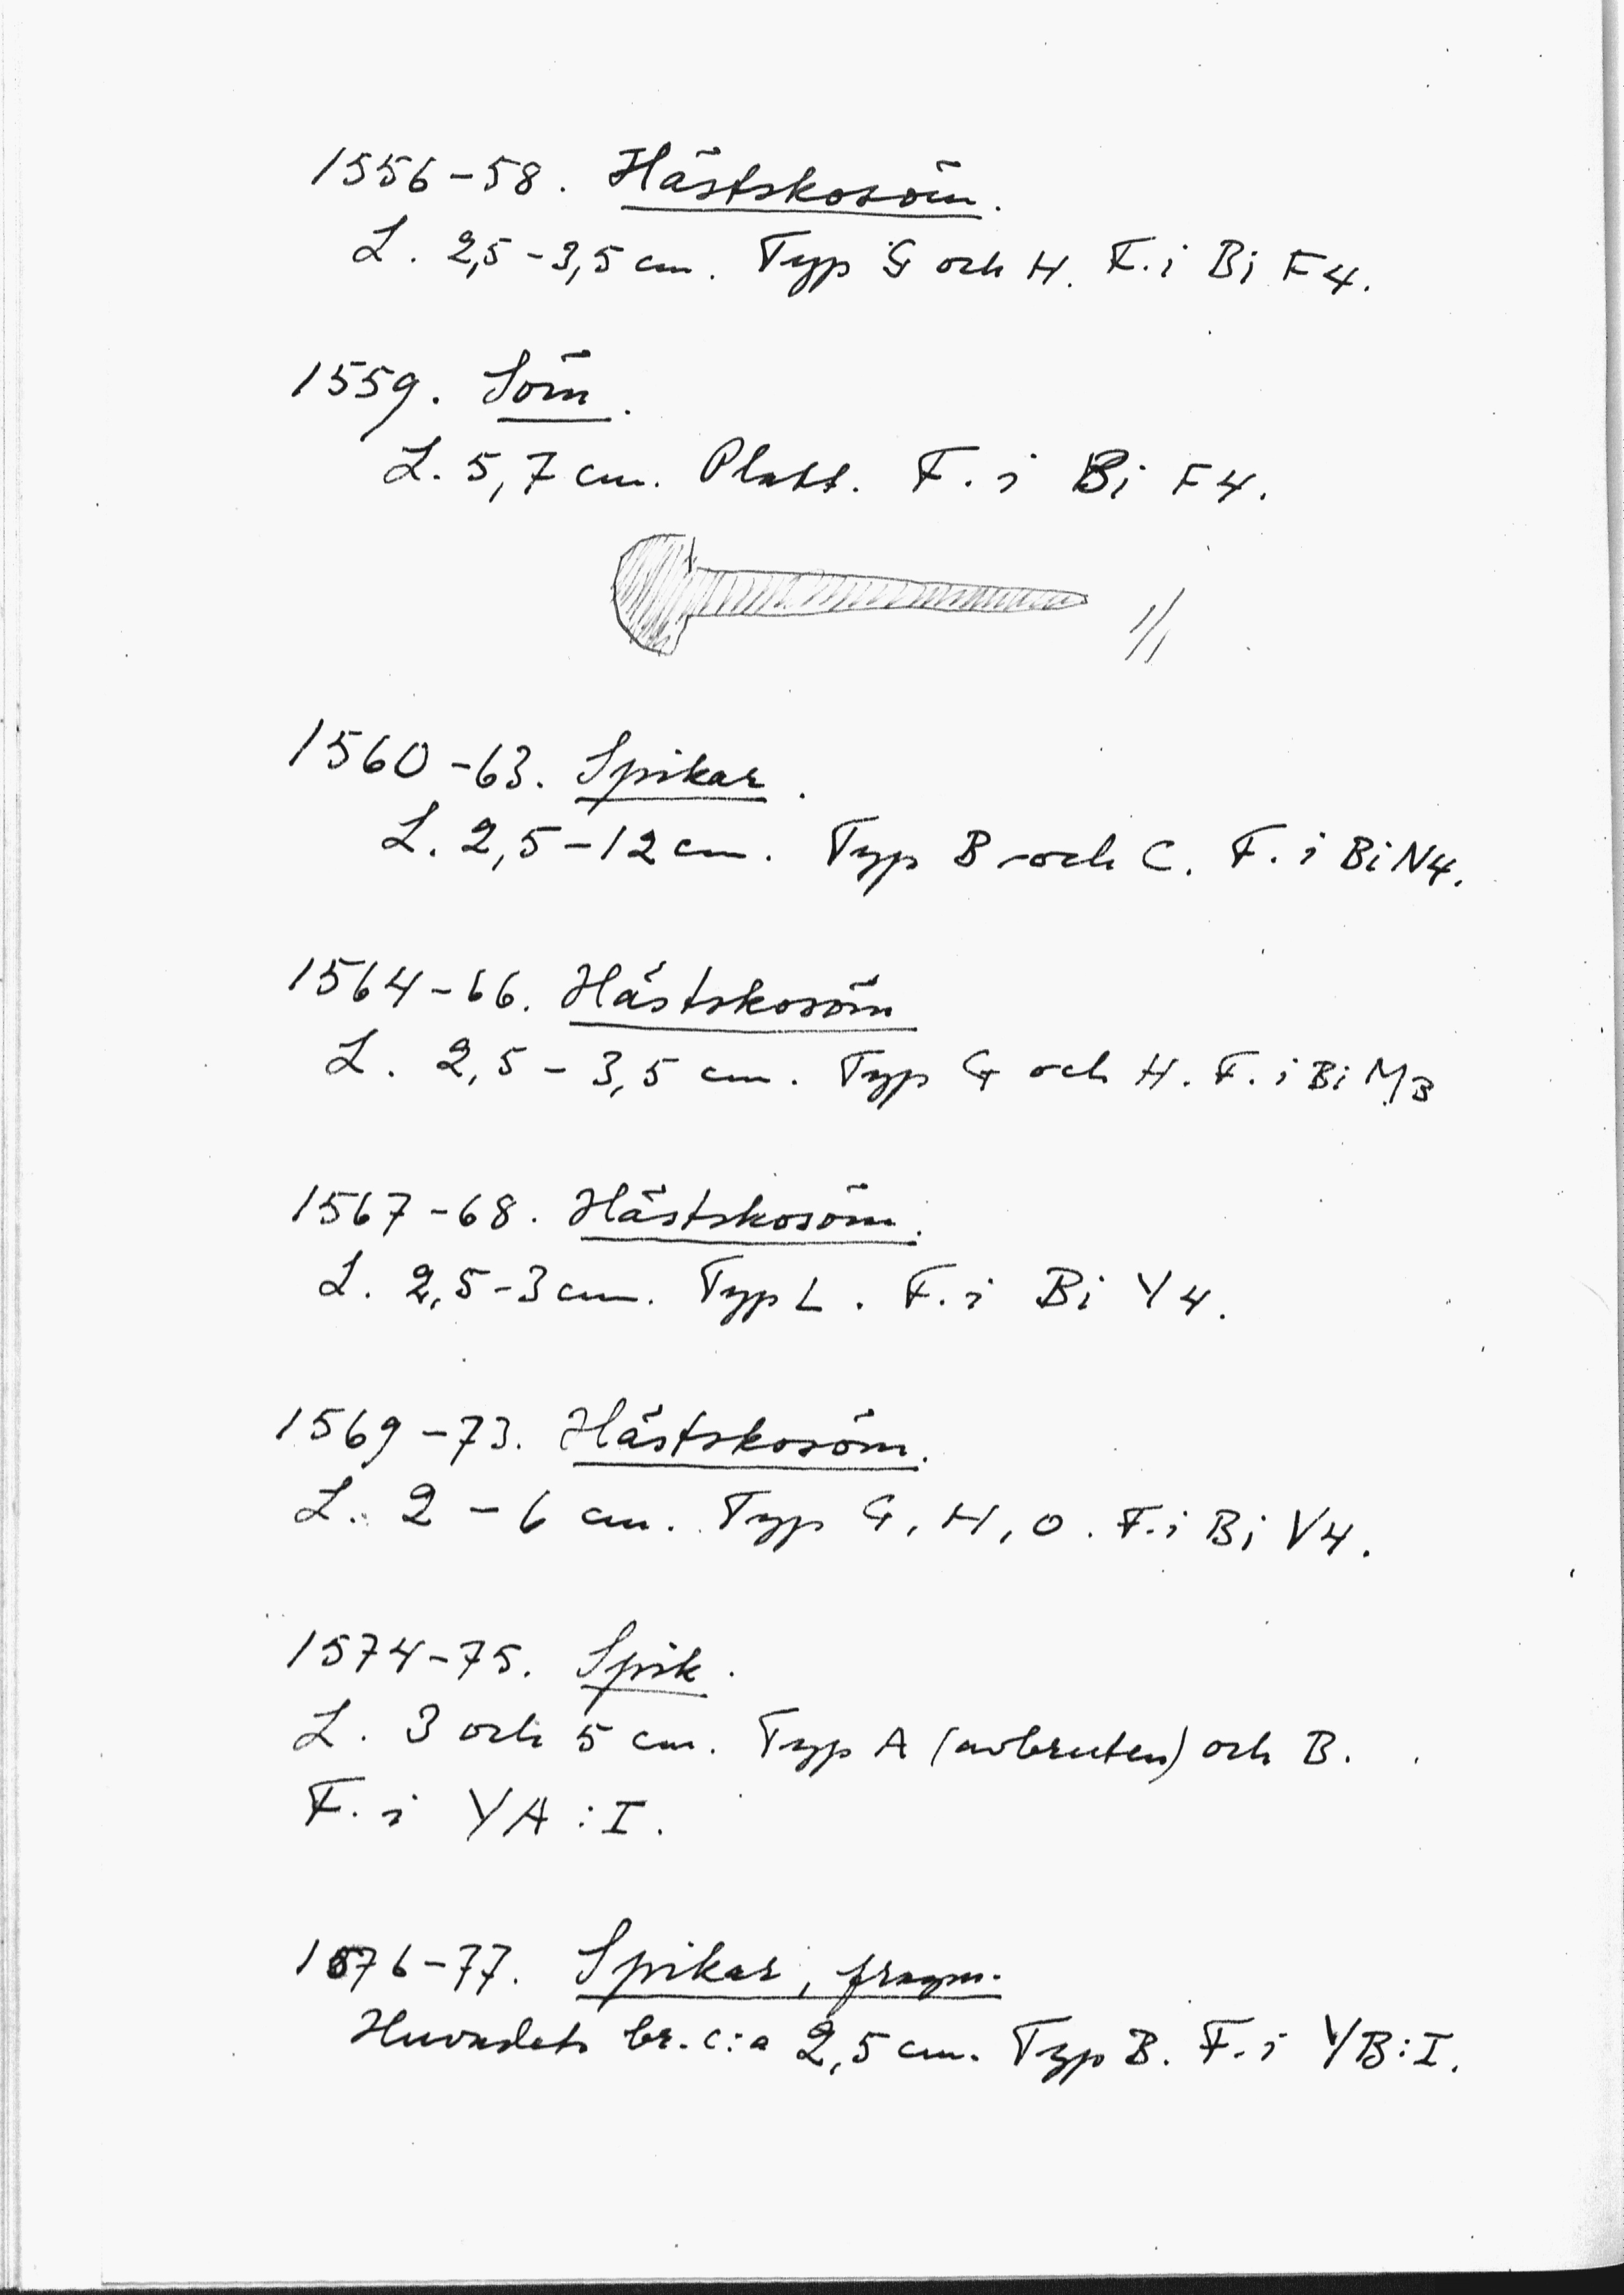 1556-58. Hästskosöm.
L. 2,5-3,5 cm. Typ G och H. F. i Bi F4.
1559. Söm.
L. 5,7 cm. Platt. F. i Bi F4.
1/1
1560-63. Spikar.
L. 2,5-12 cm. Typ B och C. F. i Bi N4.
1564-66. Hästskosöm
L. 2,5-3,5 cm. Typ G och H. F. i Bi M3
1567-68. Hästskosöm.
L. 2,5-3 cm. Typ L. F. i Bi Y4.
1569-73. Hästskosöm.
L. 2-6 cm. Typ G, H, O. F. i Bi V4.
1574-75. Spik.
L. 3 och 5 cm. Typ A (avbruten) och B.
F. i YA:I.
1576-77. Spikar, fragm.
Huvudets br. c:a 2,5 cm. Typ B. F. i YB:I.